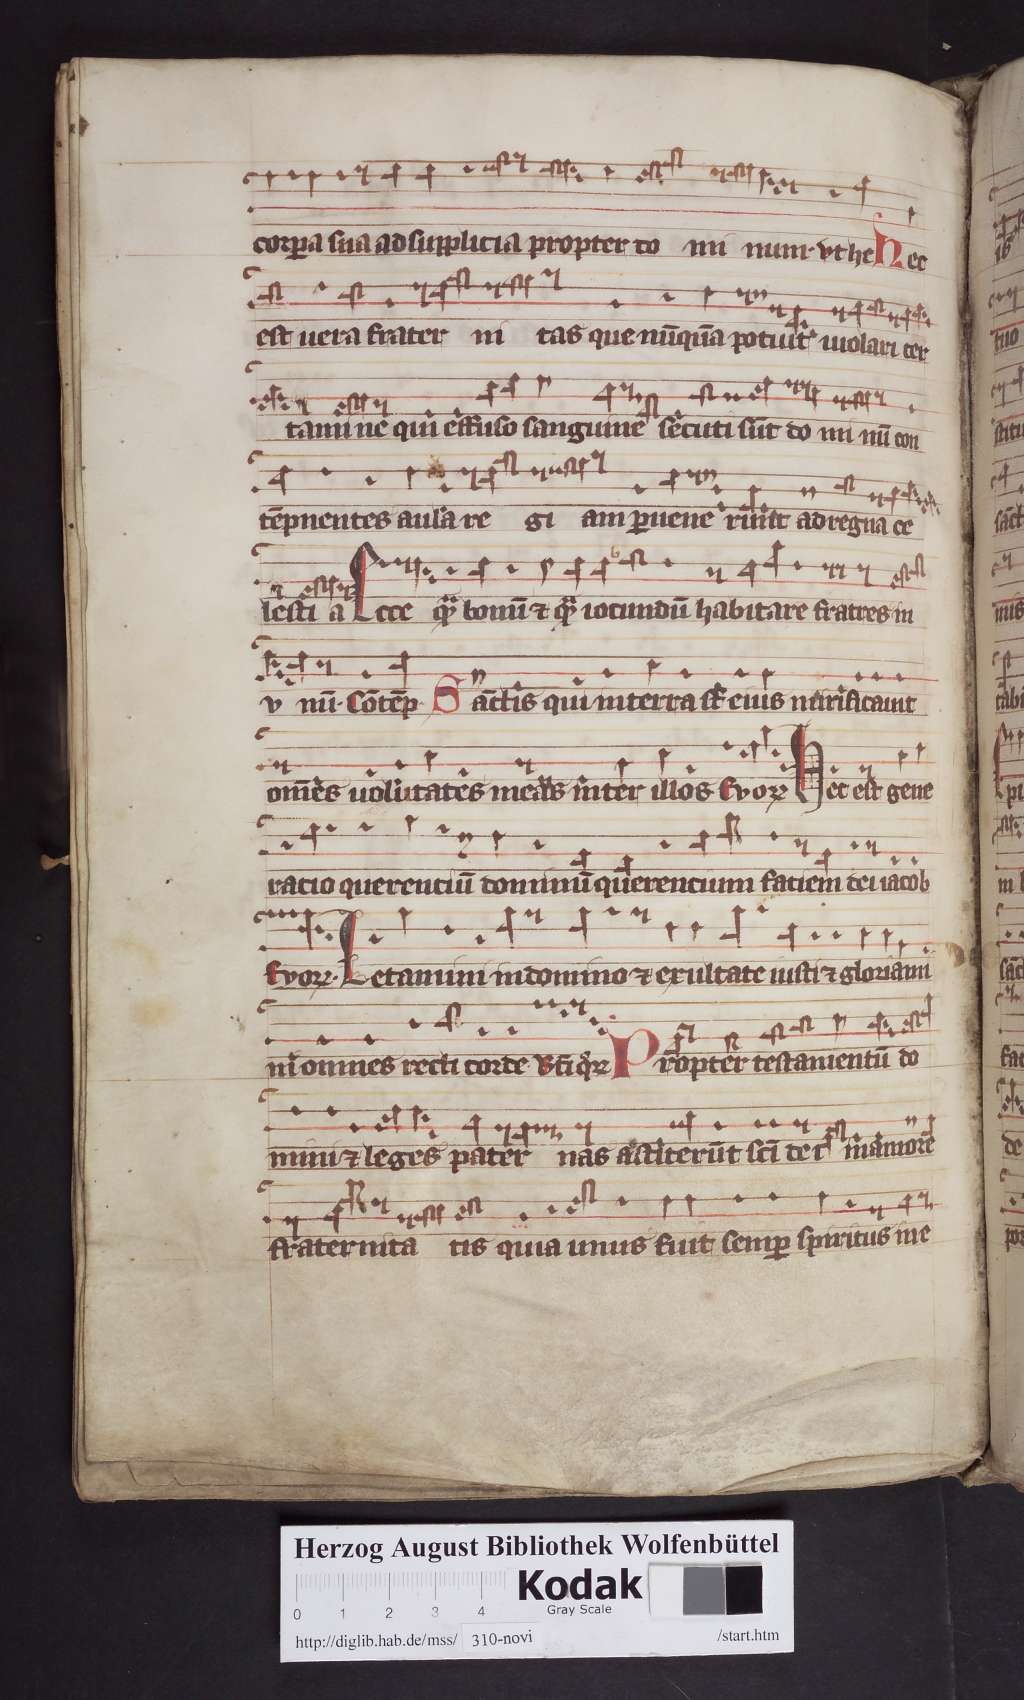 corpa sua ad supplicia propter do mi num· vt he Nec
est uera frater ni tas que nūquā potuit uiolari cer
tamine qui effuso sanguine secuti sūt do mi nū con
tēpnentes aula re gi am puene rūnt ad regna ce
lesti a Ecce quā bonū ⁊ quā iocundū habitare fratres in
v nū· Cōtēp Sāctis qui in terra sūt eius mirificauit
omēs uolūtates meas inter illos Evoꝝ Hec est gene
ratio querentiū dominū querentium faciem dei iacob
Evoꝝ· Letamini in domino ⁊ exultate iusti ⁊ gloriami
ni omnes recti corde Propter testamentū do
mini ⁊ leges pater nas astiterūt scī dei in amore
fraternita tis quia unus fuit semp spiritus in e
Herzog August Bibliothek Wolfenbüttel
0 1 2 3 4
Kodak
Gray Scale
http://diglib.hab.de/mss/ 310-novi /start.htm